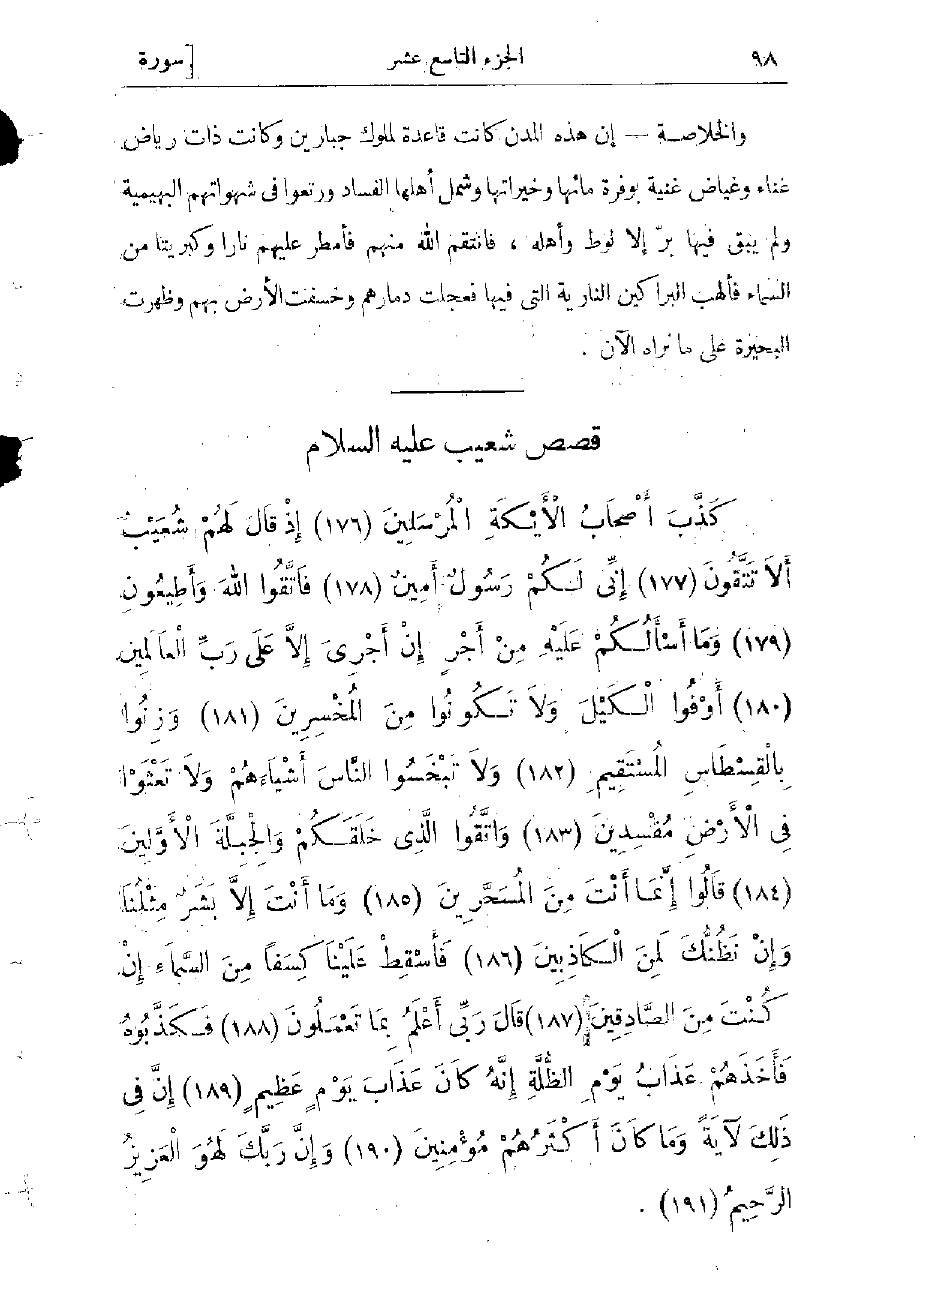 ٩٨ الجزء التاسع عشر [سورة
والخلاصة – إن هذه المدن كانت قاعدة لملوك جبارين وكانت ذات رياض
غناء وغياض غنية بوفرة مائها وخيراتها وشمل أهلها الفساد ورتعوا فى شهواتهم البهيمية
ولم يبق فيها برّ إلا لوط وأهله ، فانتقم الله منهم فأمطر عليهم نارا وكبريتا من
السماء فألهب البراكين النارية التى فيها فعجلت دمارهم وخسفت الأرض بهم وظهرت
البحيرة على ما نراه الآن .
قصص شعيب عليه السلام
كَذَّبَ أَصْحَابُ الْأَيْكَةِ الْمُرْسَلِينَ (١٧٦) إِذْ قَالَ لَهُمْ شُعَيْبٌ
أَلَا تَتَّقُونَ (١٧٧) إِنِّى لَكُمْ رَسُولٌ أَمِينٌ (١٧٨) فَاتَّقُوا اللهَ وَأَطِيعُونِ
(١٧٩) وَمَا أَسْأَلُكُمْ عَلَيْهِ مِنْ أَجْرٍ إِنْ أَجْرِىَ إِلَّا عَلَى رَبِّ الْعَالَمِينَ
(١٨٠) أَوْفُوا الْكَيْلَ وَلَا تَكُونُوا مِنَ الْمُخْسِرِينَ (١٨١) وَزِنُوا
بِالْقِسْطَاسِ الْمُسْتَقِيمِ (١٨٢) وَلَا تَبْخَسُوا النَّاسَ أَشْيَاءَهُمْ وَلَا تَعْثَوْا
فِى الْأَرْضِ مُفْسِدِينَ (١٨٣) وَاتَّقُوا الَّذِى خَلَقَكُمْ وَالْجِبِلَّةَ الْأَوَّلِينَ
(١٨٤) قَالُوا إِنَّمَا أَنْتَ مِنَ الْمُسَحَّرِينَ (١٨٥) وَمَا أَنْتَ إِلَّا بَشَرٌ مِثْلُنَا
وَإِنْ نَظُنُّكَ لَمِنَ الْكَاذِبِينَ (١٨٦) فَأَسْقِطْ عَلَيْنَا كِسَفًا مِنَ السَّمَاءِ إِنْ
كُنْتَ مِنَ الصَّادِقِينَ (١٨٧) قَالَ رَبِّى أَعْلَمُ بِمَا تَعْمَلُونَ (١٨٨) فَكَذَّبُوهُ
فَأَخَذَهُمْ عَذَابُ يَوْمِ الظُّلَّةِ إِنَّهُ كَانَ عَذَابَ يَوْمٍ عَظِيمٍ (١٨٩) إِنَّ فِى
ذَلِكَ لَآيَةً وَمَا كَانَ أَكْثَرُهُمْ مُؤْمِنِينَ (١٩٠) وَإِنَّ رَبَّكَ لَهُوَ الْعَزِيزُ
الرَّحِيمُ (١٩١) .